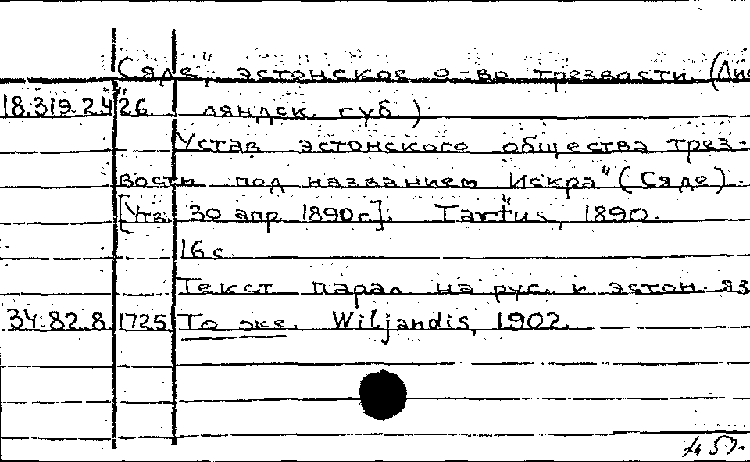 „Сяде", эстонское о-во трезвости (Лиф
18.319.2.426 ляндск. губ.)
Устав эстонского общества трез-
вости под названием „Искра" (Сяде).
[Утв. 30 апр. 1890 г.]. Tartus, 1890.
16 с.
Текст парал. на рус. и эстон. яз
34.82.8.1725 То же. Wiljandis, 1902.